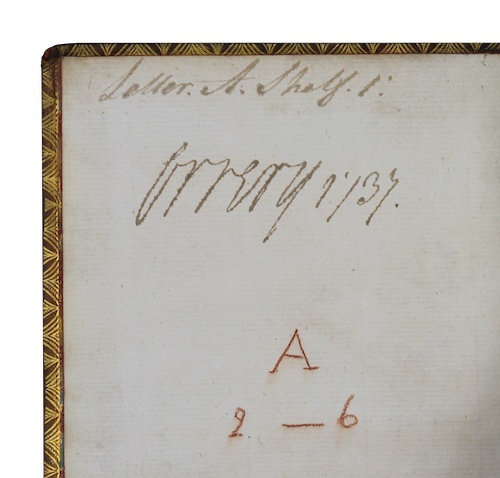 Letter. A. Shelf. 1:
Orrery 1737.
A
2 — 6